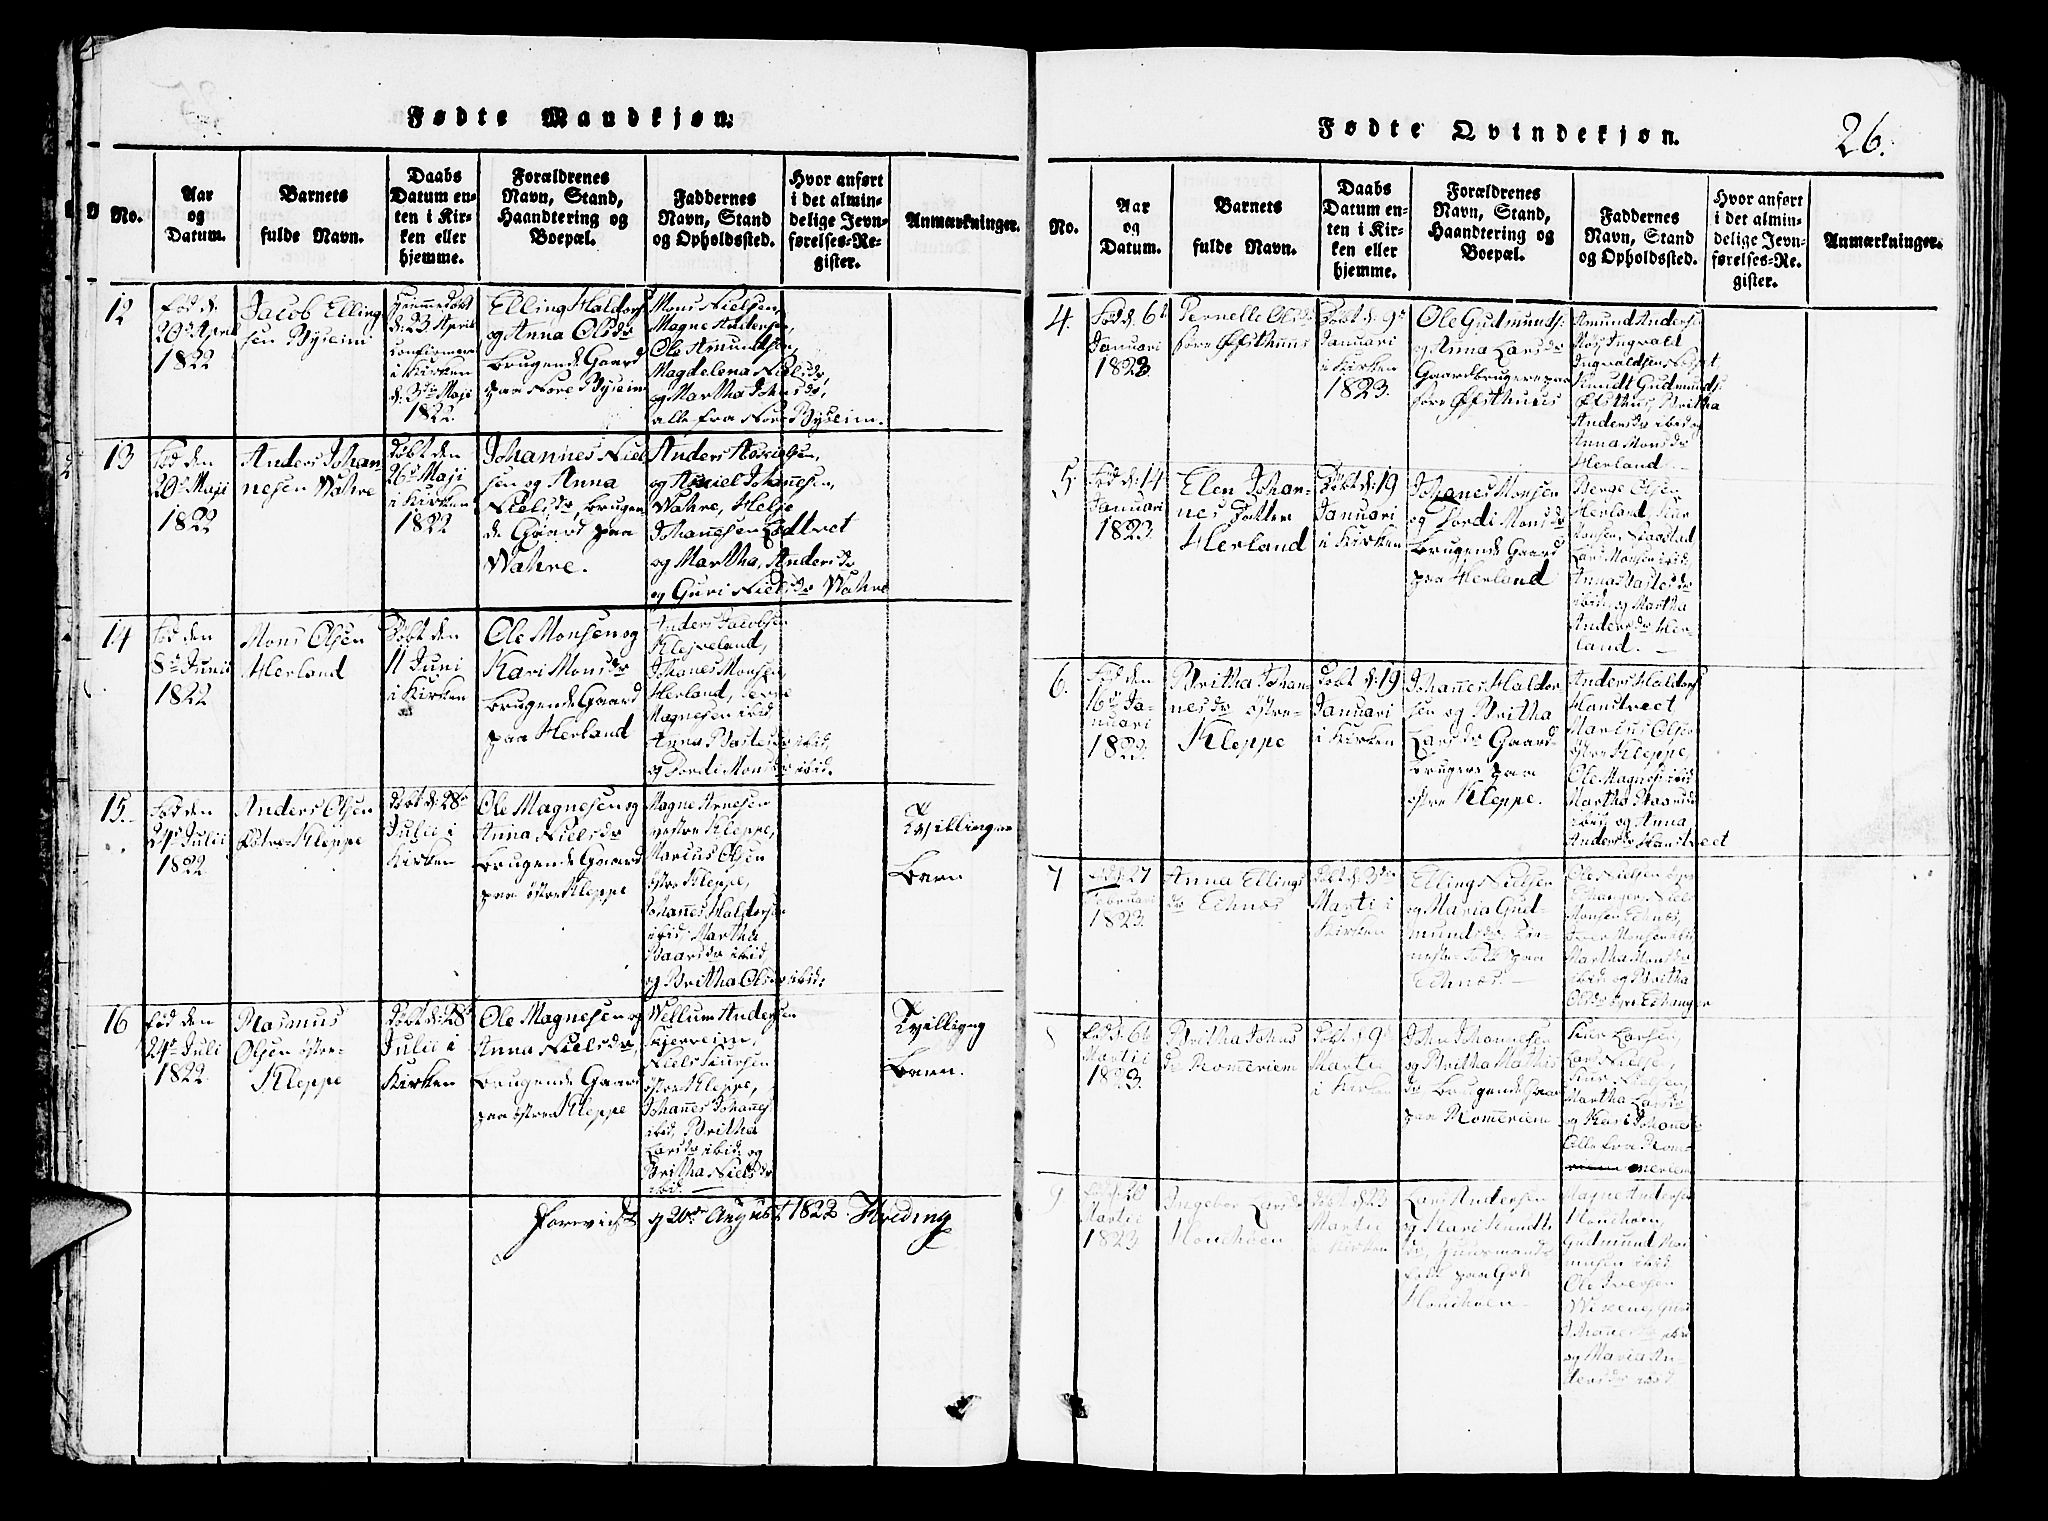 Fødte Mandkjøn.
No.
Aar
og
Datum.
Barnets
fulde Navn.
Daabs
Datum en-
ten i Kir-
ken eller
hjemme.
Forældrenes
Navn, Stand,
Haandtering og
Boepæl.
Faddernes
Navn, Stand
og Opholdssted.
Hvor anført
i det almin-
delige Jevn-
førelses-Re-
gister.
Anmærkninger.
12
Fød d.
29de April
1822
Jacob Elling
sen Byseim
Hjemmedøbt
d. 23 April
confirmeret
i Kirken
d. 3die Maji
1822.
Elling Haldors
og Anna Olsdr
brugende Gaard
paa Nore Byseim
Mons Nielsen,
Magne Andersen,
Ole Amundsen,
Magdelena Nielsdr,
og Martha Johnsdr,
alle fra Nore Byseim.
13
Fød den
20de Maji
1822
Anders Johan
nesen Wahre
Døbt den
26de Maji
i Kirken
1822
Johannes Niel
sen og Anna
Nielsdr, brugen
de Gaard paa
Wahre.
Anders
og Johannesen,
Wahre, Helje
Johannesen Lødtvet
og Martha, Andersdr
og Guri Nielsdr Wahre
14
Fød den
8de Junii
1822
Mons Olsen
Herland
Døbt den
11 Juni
i Kirken
Ole Monsen og
Kari Monsdr
brugende Gaard
paa Herland
Anders Jacobsen
Klejveland,
Johanes Monsen
Herland,
Magnesen ibid,
Anna Bastesdr ibid,
og Tordi Monsdr ibid.
15.
Fød den
24de Julii
1822
Anders Olsen
østre Kleppe
Døbt d. 28de
Julii i
Kirken
Ole Magnesen og
Anna Nielsdr
brugende Gaard
paa østre Kleppe
Magne Arnesen
vestre Kleppe,
Marcus Olsen
østre Kleppe,
Johannes Haldorsen
ibid, Martha
Baarsdr ibid
og Britha Olsdr ibid.
Tvillinge
Barn
16
Fød den
24de Juli
1822.
Rasmus
Olsen østre
Kleppe
Døbt d. 28de
Julii i
Kirken
Ole Magnesen og
Anna Nielsdr,
brugende Gaard
paa østre Kleppe
Wellum Andersen
Kjerreim,
Niels Knudsen
østre Kleppe,
Johannes Johannes
ibid, Britha
Larsdr ibid og
Britha Nielsdr
ibid.
Tvilling
Barn.
Forevist d. 20de August 1822. Hveding
Fødte Qvindekjøn.
26.
No.
Aar
og
Datum.
Barnets
fulde Navn.
Daabs
Datum en-
ten i Kir-
ken eller
hjemme.
Forældrenes
Navn, Stand,
Haandtering og
Boepæl.
Faddernes
Navn, Stand
og Opholdssted.
Hvor anført
i det almin-
delige Jevn-
førelses-Re-
gister.
Anmærkninger.
4.
Fød d. 6te
Januari
1823
Pernelle Olsdr
Øfsthuus
Døbt d. 9de
Januari
i Kirken
1823.
Ole Gudmunds:
og Anna Larsdr
Gaardbrugere paa
Øfsthuus
Amund Anders:
Ingvald
Ingvaldsen
Knudt Gudmunds:
Øfsthus, Britha
Andersdr ibid og
Anna Monsdr
Herland.
5.
Fød d. 14
Januari
1823.
Elen Johan-
nes Datter
Herland
Døbt d. 19
Januari
i Kirken
Johanes Monsen
og Tordi Monsdr
brugende Gaard
paa Herland
Børge Olsen
Herland,
Lars Monsen ibid,
Anna Bastesdr
ibid, og Martha
Andersdr Her-
land.
6.
Fød den
16de Ja-
nuari
1823.
Britha Johan-
nesdr østre-
Kleppe
Døbt d. 19
Januari
i Kirken
Johannes Haldor
sen og Britha
Larsdr Gaard-
brugere paa
østre Kleppe.
Anders Haldors
Hanstveet
Marcus Olsen
østre Kleppe,
Ole Magnes: ibid
Martha
ibid, og Anna
Andersdr Hanstveet
7
Fød d. 27
Februari
1823.
Anna Ellings
dr Echnæs
Døbt d. 3die
Martii i
Kirken
Elling Nielsen
og Maria Gud-
mundsdr,
paa
Echnæs.
Ole Nielsen
Echanger, Niels
Monsen Echnæs,
Iver Monsen ibid,
Martha Monsdr
ibid og Britha
Olsdr Echanger
8
Fød d. 6te
Martii
1823.
Britha Johns
dr Romeriem
Døbt d. 9de
Martii
i Kirken
John Johannesen
og Britha Mathis
dr brugende Gaard
paa Romeriem
Lars Nielse,
Martha Larsdr
og Kari Johanesdr
Alle fra Rom-
merlem
9
Martii
1823
Ingebor Larsdr
Hondhoen
Døbt d. 23
Martii
i Kirken
Lars Andersen
og Mari Knudts
dr, Huusmands
folk paa
Hondhoen
Magne Andersen
Hondhoen,
Gudmund
ibid
Ole Iversen
og Maria An-
dersdr ibid